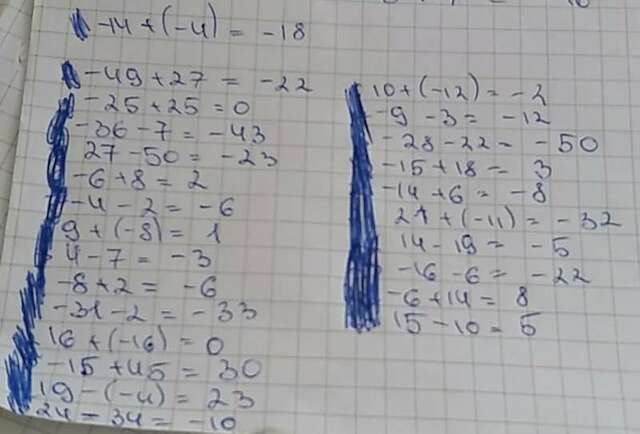 -14 + (-4) = -18
-49 + 27 = -22
-25 + 25 = 0
-36 - 7 = -43
27 - 50 = -23
-6 + 8 = 2
-4 - 2 = -6
9 + (-8) = 1
4 - 7 = -3
-8 + 2 = -6
-31 - 2 = -33
16 + (-16) = 0
-15 + 45 = 30
19 - (-4) = 23
24 - 34 = -10
10 + (-12) = -2
-9 - 3 = -12
-28 - 22 = -50
-15 + 18 = 3
-14 + 6 = -8
21 + (-11) = -32
14 - 19 = -5
-16 - 6 = -22
-6 + 14 = 8
15 - 10 = 5